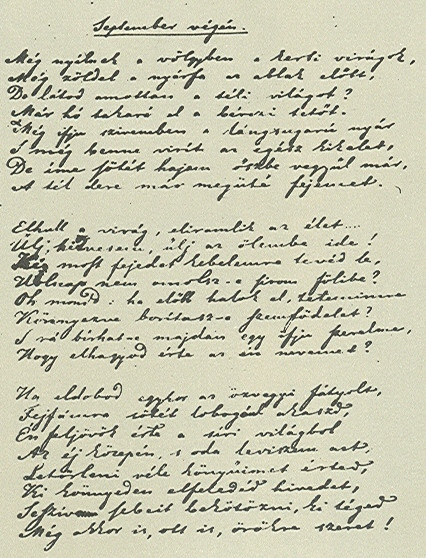 September végén.
Még nyílnak a völgyben a kerti virágok,
Még zöldel a nyárfa az ablak előtt,
De látod amottan a téli világot?
Már hó takará el a bérczi tetőt.
Még ifju szivemben a lángsugarú nyár
S még benne virít az egész kikelet,
De íme sötét hajam őszbe vegyűl már,
A tél dere már megüté fejemet.
Elhull a virág, eliramlik az élet....
Űlj, hitvesem, űlj az ölembe ide!
Ki most fejedet kebelemre tevéd le,
Holnap nem omolsz-e sírom fölibe?
Oh mondd: ha előbb halok el, tetemimre
Könnyezve borítasz-e szemfödelet?
S rá bírhat-e majdan egy ifju szerelme,
Hogy elhagyod érte az én nevemet?
Ha eldobod egykor az özvegyi fátyolt,
Fejfámra sötét lobogóúl akaszd,
Én feljövök érte a síri világból
Az éj közepén, s oda leviszem azt,
Letörleni véle könyűimet érted,
Ki könnyeden elfeledéd hivedet,
S e szív sebeit bekötözni, ki téged
Még akkor is, ott is, örökre szeret!